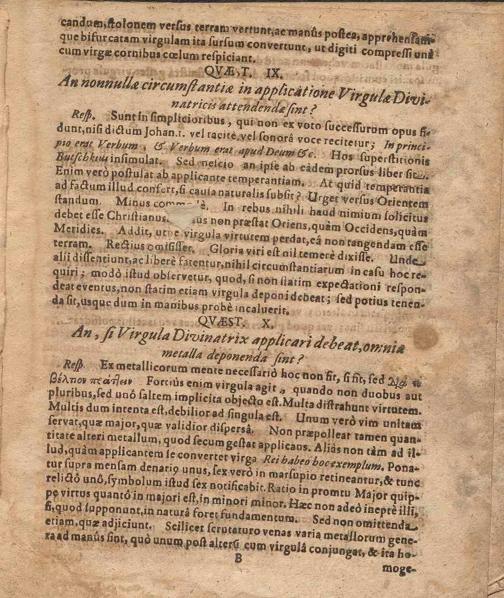 candum, stolonem versus terram vertunt, ac manûs postea, apprehensam-
que bifurcatam virgulam ita sursum convertunt, ut digiti compressi unà
cum virgæ cornibus cœlum respiciant.
QUÆST. IX.
An nonnullæ circumstantiæ in applicatione Virgulæ Divi-
natricis attendendæ sint?
Resp. Sunt in simplicioribus, qui non ex voto successurum opus fi-
dunt, nisi dictum Johan. 1. vel tacitè vel sonorâ voce recitetur; In princi-
pio erat Verbum, & Verbum erat apud Deum &c. Hos superstitionis
Butschkius insimulat. Sed nescio an ipse ab eâdem prorsus liber sit.
Enim verò postulat ab applicante temperantiam. At quid temperantia
ad factum illud confert, si causa naturalis subsit? Urget versus Orientem
standum. Minus In rebus nihili haud nimium solicitus
debet esse Christianus. non præstat Oriens, quàm Occidens, quàm
Meridies. Addit, ut ne virgula virtutem perdat, eâ non tangendam esse
terram. Rectius omisisset. Gloria viri est nil temerè dixisse. Unde
alii dissentiunt, ac liberè fatentur, nihil circumstantiarum in casu hoc re-
quiri; modò istud observetur, quod, si non statim expectationi respon-
deat eventus, non statim etiam virgula deponi debeat; sed potius tenen-
da sit, usque dum in manibus probè incaluerit.
QUÆST. X.
An, si Virgula Divinatrix applicari debeat, omnia
metalla deponenda sint?
Resp. Ex metallicorum mente necessariò hoc non fit, si fit, sed
Fortiùs enim virgula agit, quando non duobus aut
pluribus, sed unò saltem implicita objecto est. Multa distrahunt virtutem.
Multis dum intenta est, debilior ad singula est. Unum verò vim unitam
servat, quæ major, quæ validior dispersâ. Non præpolleat tamen quan-
titate alteri metallum, quod secum gestat applicans. Aliàs non tàm ad il-
lud, quàm applicantem se convertet virga. Rei habeo hoc exemplum. Pona-
tur supra mensam denario unus, sex verò in marsupio retineantur, & tunc
relictô unô, symbolum istud sex notificabit. Ratio in promtu Major quip-
pe virtus quantò in majori est, in minori minor. Hæc non adeò ineptè illi,
si, quod supponunt, in naturâ foret fundamentum. Sed non omittenda
etiam, quæ adjiciunt. Scilicet scrutaturo venas varia metallorum gene-
ra ad manûs sint, quò unum post alterũ cum virgulâ conjungat, & ita ho-
B
moge-